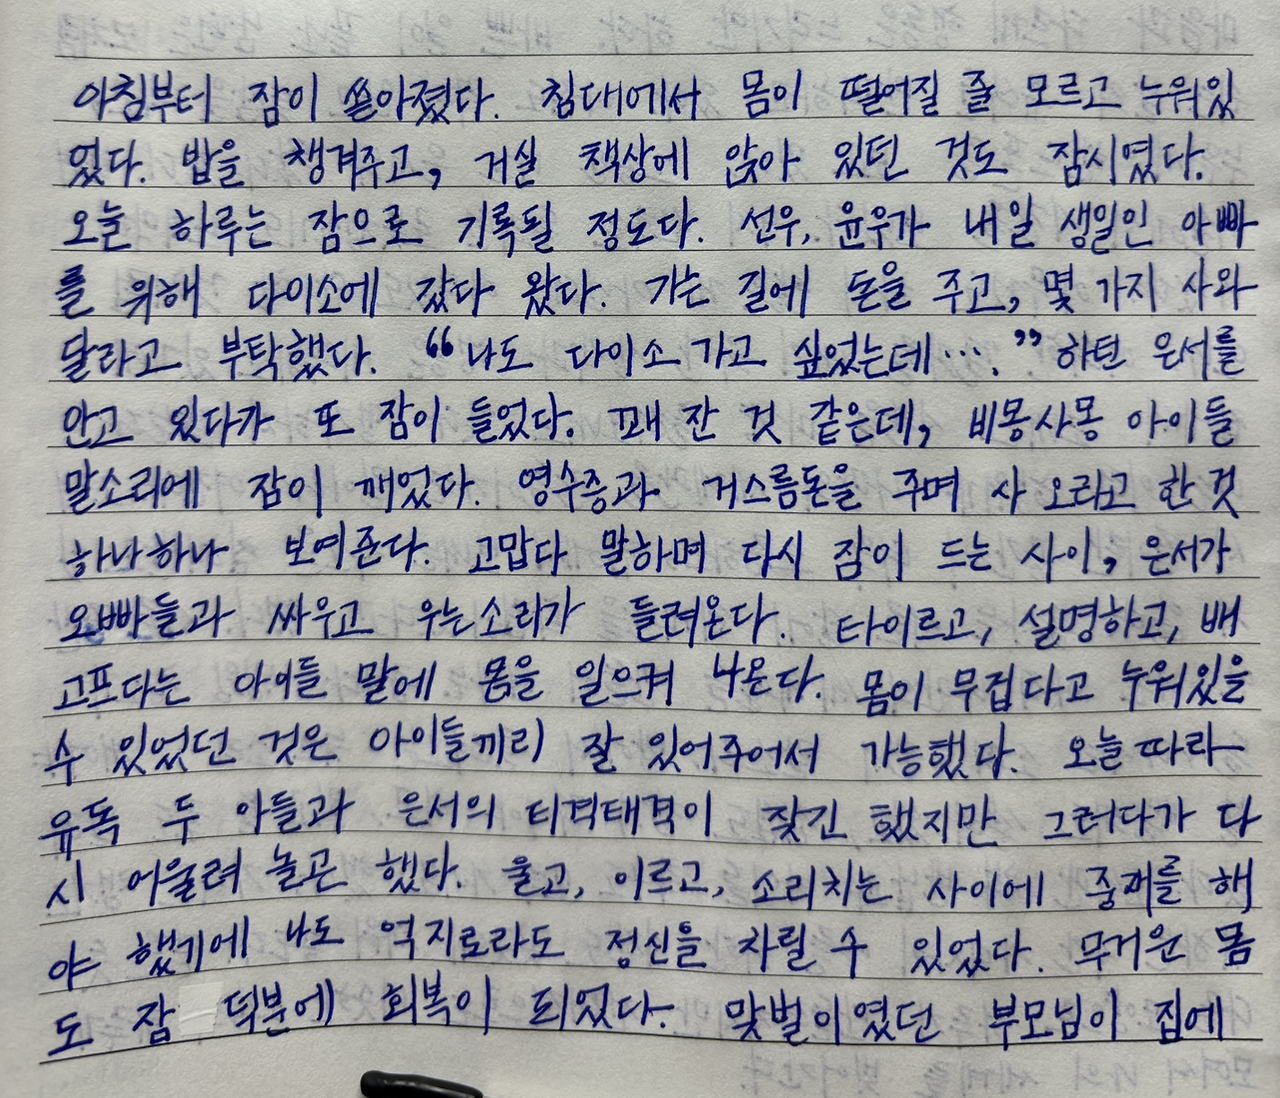 아침부터 잠이 쏟아졌다. 침대에서 몸이 떨어질 줄 모르고 누워있
었다. 밥을 챙겨주고, 거실 책상에 앉아 있던 것도 잠시였다.
오늘 하루는 잠으로 기록될 정도다. 선우, 윤우가 내일 생일인 아빠
를 위해 다이소에 갔다 왔다. 가는 길에 돈을 주고, 몇 가지 사와
달라고 부탁했다. “나도 다이소 가고 싶었는데….” 하던 은서를
안고 있다가 또 잠이 들었다. 꽤 잔 것 같은데, 비몽사몽 아이들
말소리에 잠이 깨었다. 영수증과 거스름돈을 주며 사 오라고 한 것
하나하나 보여준다. 고맙다 말하며 다시 잠이 드는 사이, 은서가
오빠들과 싸우고 우는소리가 들려온다. 타이르고, 설명하고, 배
고프다는 아이들 말에 몸을 일으켜 나온다. 몸이 무겁다고 누워있을
수 있었던 것은 아이들끼리 잘 있어주어서 가능했다. 오늘따라
유독 두 아들과 은서의 티격태격이 잦긴 했지만 그러다가 다
시 어울려 놀곤 했다. 울고, 이르고, 소리치는 사이에 중재를 해
야 했기에 나도 억지로라도 정신을 차릴 수 있었다. 무거운 몸
도 잠 덕분에 회복이 되었다. 맞벌이였던 부모님이 집에